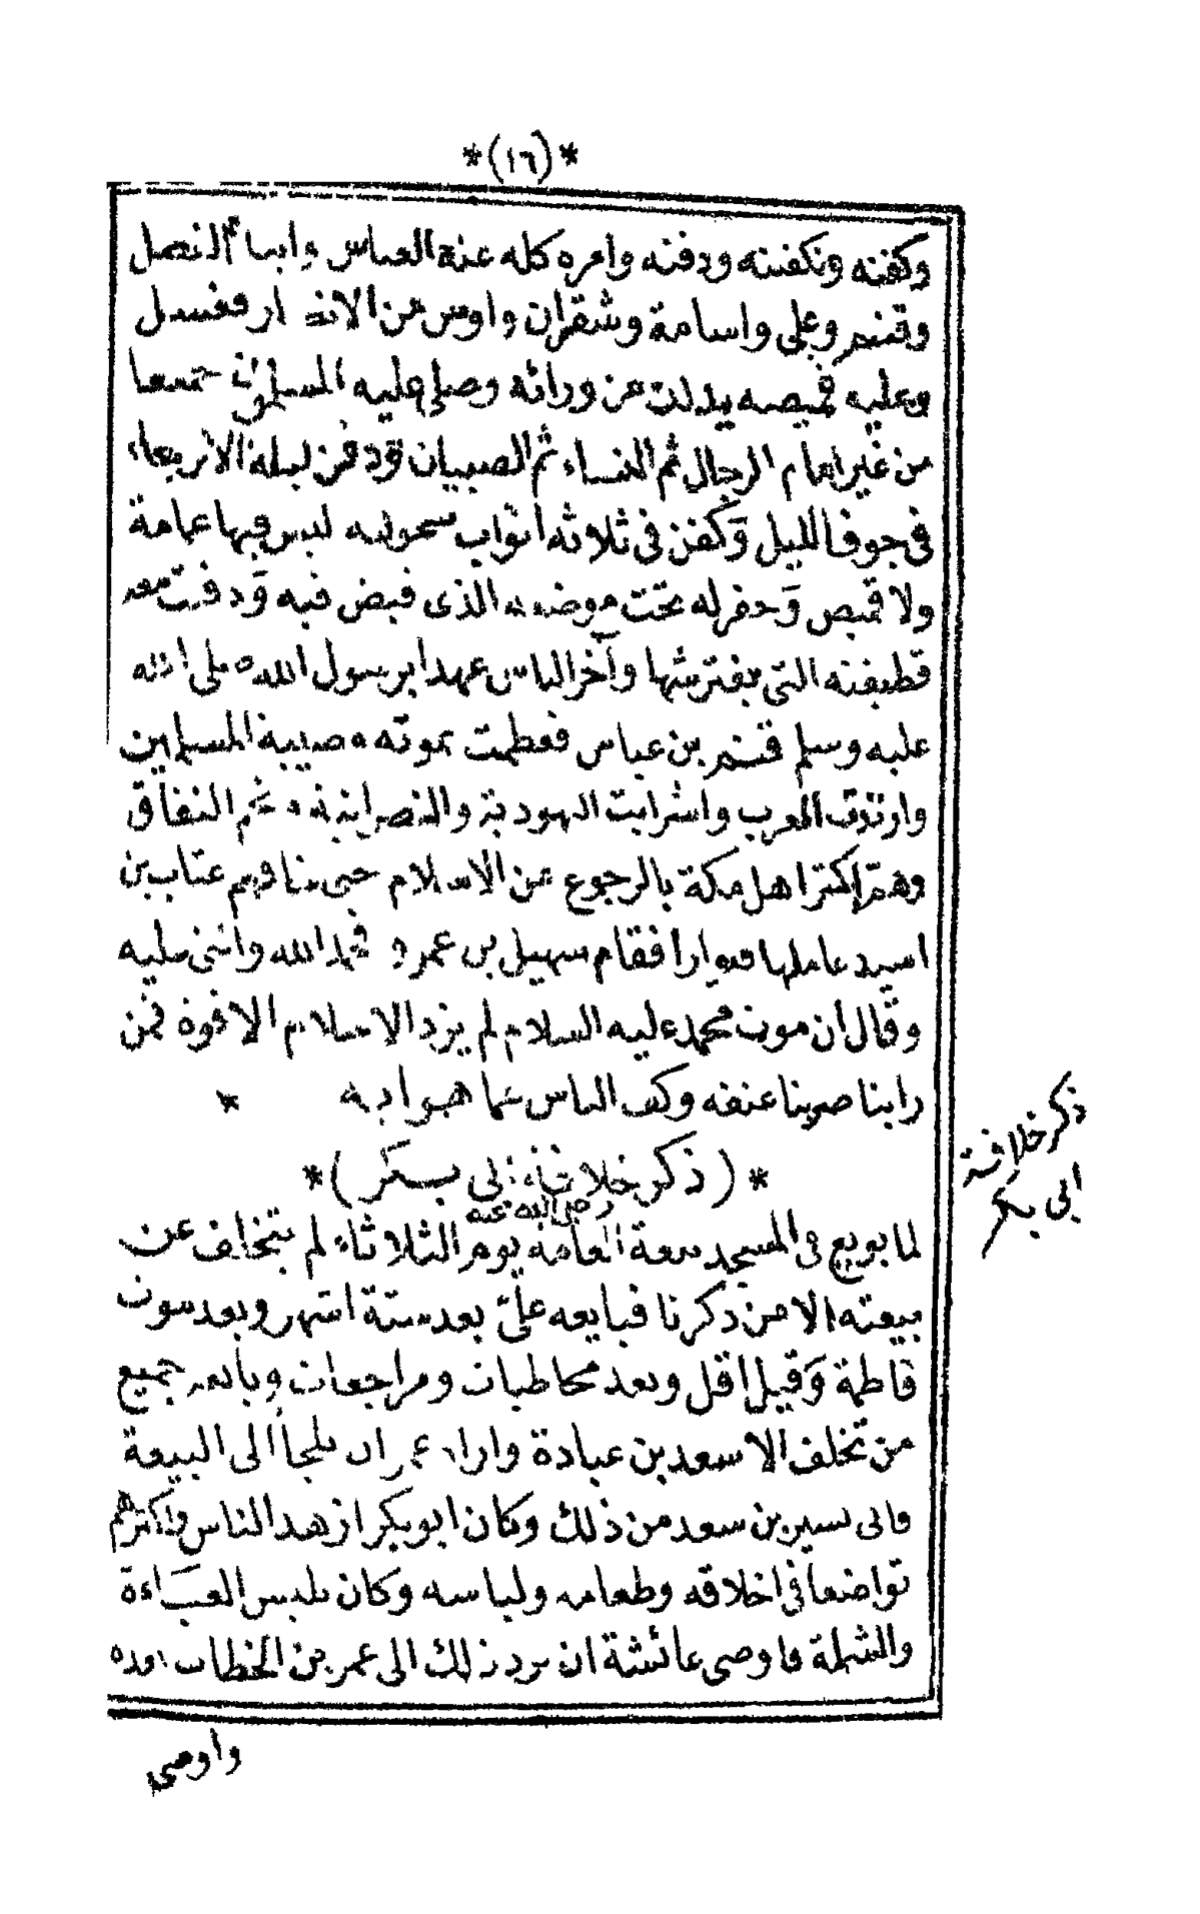 *(١٦)*
وكفنه وتكفينه ودفنه وامره كله عنه العباس وابناه الفضل
وقثم وعلى واسامة وشقران واوس من الانصار فغسل
وعليه قميصه يدلك من ورائه وصلى عليه المسلمون جميعا
من غير امام الرجال ثم النساء ثم الصبيان ودفن ليلة الاربعاء
فى جوف الليل وكفن فى ثلاثة اثواب سحوليه ليس فيها عمامة
ولا قميص وحفر له تحت موضعه الذى قبض فيه ودفنت معه
قطيفته التى يفترشها وآخر الناس عهدا برسول الله صلى الله
عليه وسلم قثم بن عباس فعظمت بموته مصيبة المسلمين
وارتدت العرب واشرابت اليهودية والنصرانية ونجم النفاق
وهمّ اكثر اهل مكة بالرجوع عن الاسلام حتى خافهم عتاب بن
اسيد عاملها فتوارا فقام سهيل بن عمرو فحمد الله واثنى عليه
وقال ان موت محمد عليه السلام لم يزد الاسلام الا قوة فمن
رابنا ضربنا عنقه وكف الناس عما هموا به *
*(ذكر خلافة ابى بكر)*
رضى الله عنه
لما بويع فى المسجد بيعة العامة يوم الثلاثاء لم يتخلف عن
بيعته الا من ذكرنا فبايعه علىّ بعد ستة اشهر وبعد موت
فاطمة وقيل اقل وبعد مخاطبات ومراجعات وبايعه جميع
من تخلف الا سعد بن عبادة واراد عمر ان يلجأ الى البيعة
فابى بشير بن سعد من ذلك وكان ابو بكر ازهد الناس واكثرهم
تواضعا فى اخلاقه وطعامه ولباسه وكان يلبس العباءة
والشملة فاوصى عائشة ان يرد ذلك الى عمر بن الخطاب بعده
واوصى
ذكر خلافة
ابى بكر